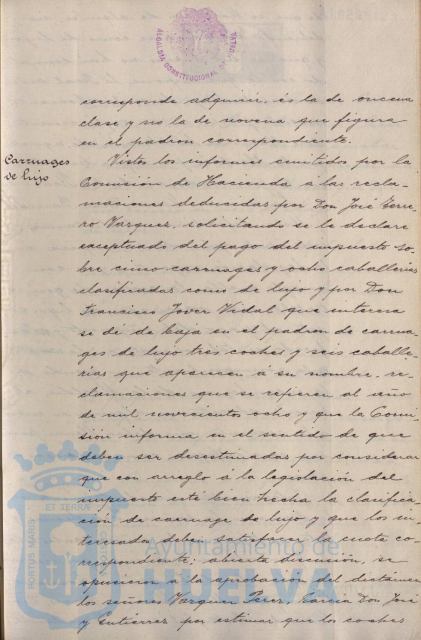 ALCALDIA CONSTITUCIONAL DE HUELVA
corresponde adquirir, és la de oncena
clase y no la de novena que figura
en el padron correspondiente.
Carruages
de lujo
Vistos los informes emitidos por la
Comisión de Hacienda á las recla-
maciones deducidas por Don José Ferre-
ro Vazquez, solicitando se le declare
exceptuado del pago del impuesto so-
bre cinco carruages y ocho caballerias
clasificadas como de lujo y por Don
Francisco Jover Vidal que interesa
se dé de baja en el padron de carrua-
ges de lujo tres coches y seis caballe-
rias que aparecen á su nombre, re-
clamaciones que se refieren al año
de mil novecientos ocho y que la Comi-
sión informa en el sentido de que
deben ser desestimadas por considerar
que con arreglo á la legislación del
impuesto está bien hecha la clasifica-
ación de carruage de lujo y que los in-
teresados deben satisfacer la cuota co-
rrespondiente; abierta discusión, se
opusieron á la aprobación del dictamen
los señores Vazquez Perez, Garcia Don José
y Gutierrez por estimar que los coches
PORTUS MARIS
ET TERRAE
Ayuntamiento de
HUELVA